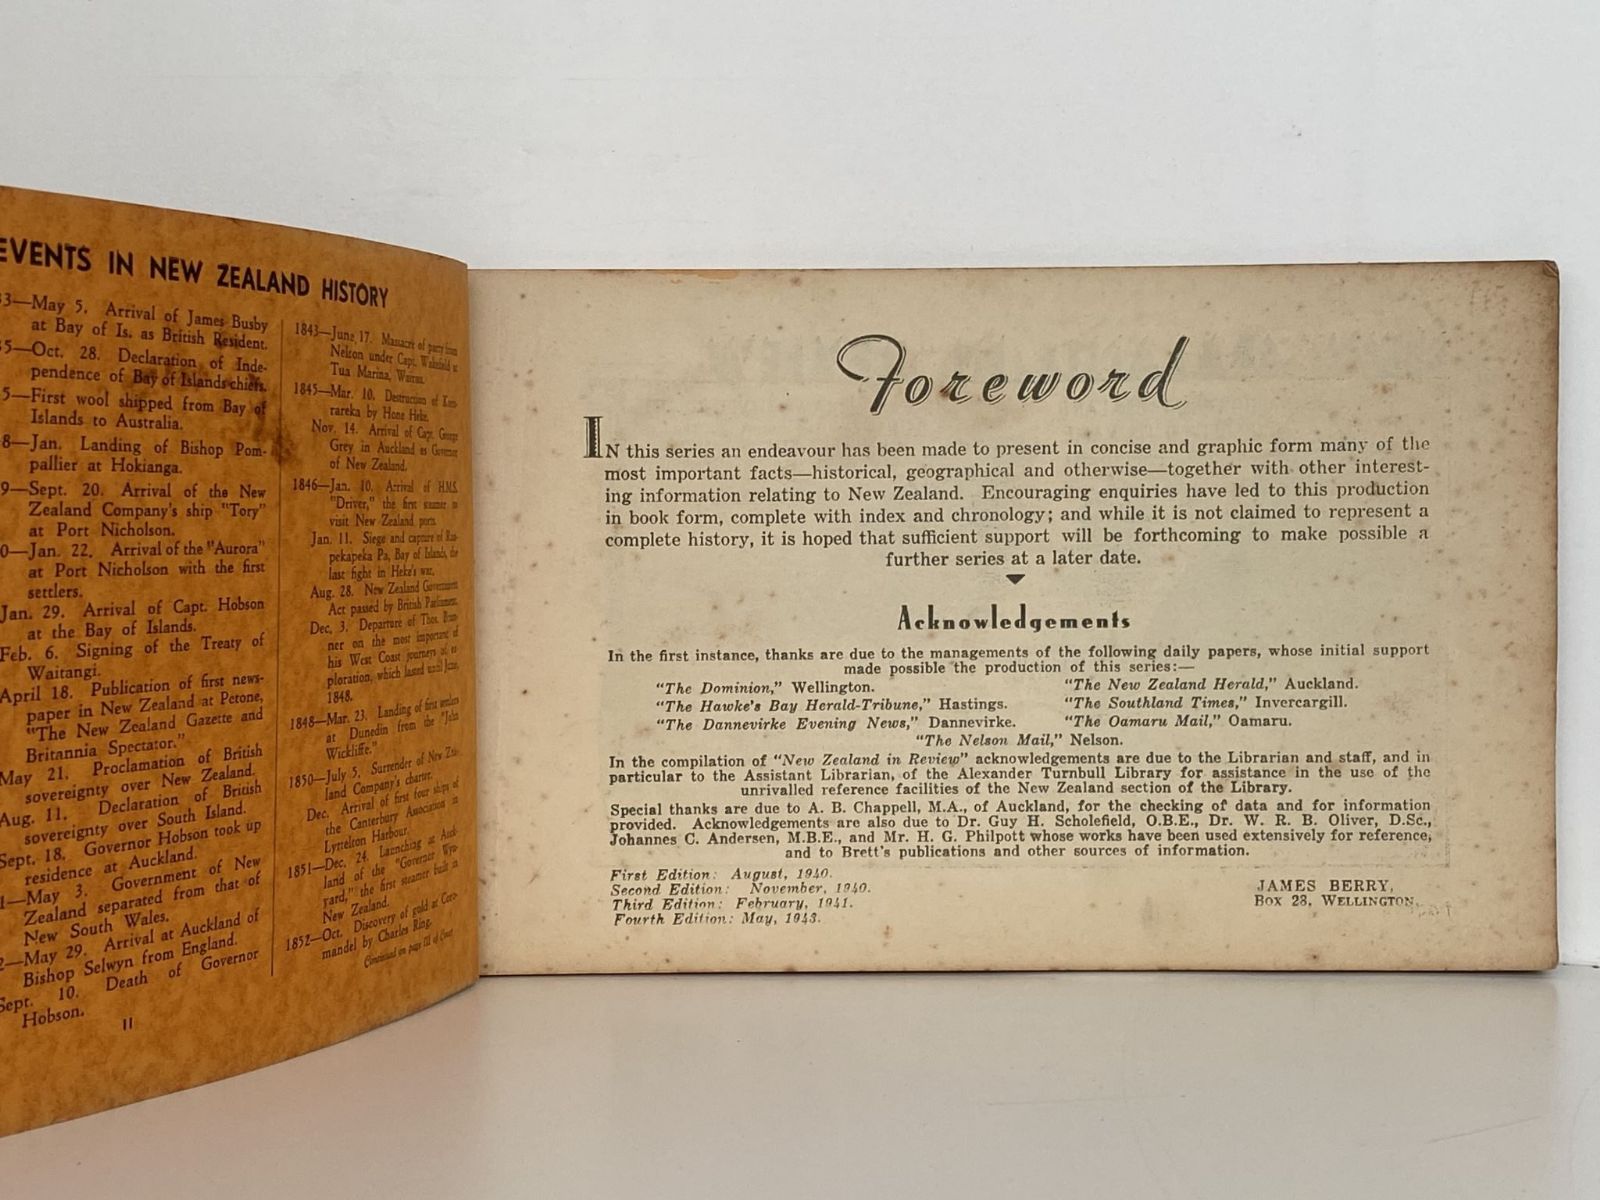 EVENTS IN NEW ZEALAND HISTORY
33—May 5. Arrival of James Busby
at Bay of Is. as British Resident.
35—Oct. 28. Declaration of Inde-
pendence of Bay of Islands chiefs.
5—First wool shipped from Bay of
Islands to Australia.
8—Jan. Landing of Bishop Pom-
pallier at Hokianga.
9—Sept. 20. Arrival of the New
Zealand Company's ship "Tory"
at Port Nicholson.
0—Jan. 22. Arrival of the "Aurora"
at Port Nicholson with the first
settlers.
Jan. 29. Arrival of Capt. Hobson
at the Bay of Islands.
Feb. 6. Signing of the Treaty of
Waitangi.
April 18. Publication of first news-
paper in New Zealand at Petone,
"The New Zealand Gazette and
Britannia Spectator."
May 21. Proclamation of British
sovereignty over New Zealand.
Aug. 11. Declaration of British
sovereignty over South Island.
Sept. 18. Governor Hobson took up
residence at Auckland.
1—May 3. Government of New
Zealand separated from that of
New South Wales.
2—May 29. Arrival at Auckland of
Bishop Selwyn from England.
Sept. 10. Death of Governor
Hobson.
II
1843—June 17. Massacre of party from
Nelson under Capt. Wakefield at
Tua Marina, Wairau.
1845—Mar. 10. Destruction of Koro-
rareka by Hone Heke.
Nov. 14. Arrival of Capt. George
Grey in Auckland as Governor
of New Zealand.
1846—Jan. 10. Arrival of H.M.S.
"Driver," the first steamer to
visit New Zealand ports.
Jan. 11. Siege and capture of Rua-
pekapeka Pa, Bay of Islands, the
last fight in Heke's war.
Aug. 28. New Zealand Government
Act passed by British Parliament.
Dec. 3. Departure of Thos. Brun-
ner on the most important of
his West Coast journeys of ex-
ploration, which lasted until June,
1848.
1848—Mar. 23. Landing of first settlers
at Dunedin from the "John
Wickliffe."
1850—July 5. Surrender of New Zea-
land Company's charter.
Dec. Arrival of first four ships of
the Canterbury Association in
Lyttelton Harbour.
1851—Dec. 24. Launching at Auck-
land of the "Governor Wyn-
yard," the first steamer built in
New Zealand.
1852—Oct. Discovery of gold at Coro-
mandel by Charles Ring.
Continued on page III of Cover
Foreword
IN this series an endeavour has been made to present in concise and graphic form many of the
most important facts—historical, geographical and otherwise—together with other interest-
ing information relating to New Zealand. Encouraging enquiries have led to this production
in book form, complete with index and chronology; and while it is not claimed to represent a
complete history, it is hoped that sufficient support will be forthcoming to make possible a
further series at a later date.
Acknowledgements
In the first instance, thanks are due to the managements of the following daily papers, whose initial support
made possible the production of this series:—
"The Dominion," Wellington. "The New Zealand Herald," Auckland.
"The Hawke's Bay Herald-Tribune," Hastings. "The Southland Times," Invercargill.
"The Dannevirke Evening News," Dannevirke. "The Oamaru Mail," Oamaru.
"The Nelson Mail," Nelson.
In the compilation of "New Zealand in Review" acknowledgements are due to the Librarian and staff, and in
particular to the Assistant Librarian, of the Alexander Turnbull Library for assistance in the use of the
unrivalled reference facilities of the New Zealand section of the Library.
Special thanks are due to A. B. Chappell, M.A., of Auckland, for the checking of data and for information
provided. Acknowledgements are also due to Dr. Guy H. Scholefield, O.B.E., Dr. W. R. B. Oliver, D.Sc.,
Johannes C. Andersen, M.B.E., and Mr. H. G. Philpott whose works have been used extensively for reference,
and to Brett's publications and other sources of information.
First Edition: August, 1940.
Second Edition: November, 1940.
Third Edition: February, 1941.
Fourth Edition: May, 1943.
JAMES BERRY,
Box 28, WELLINGTON.